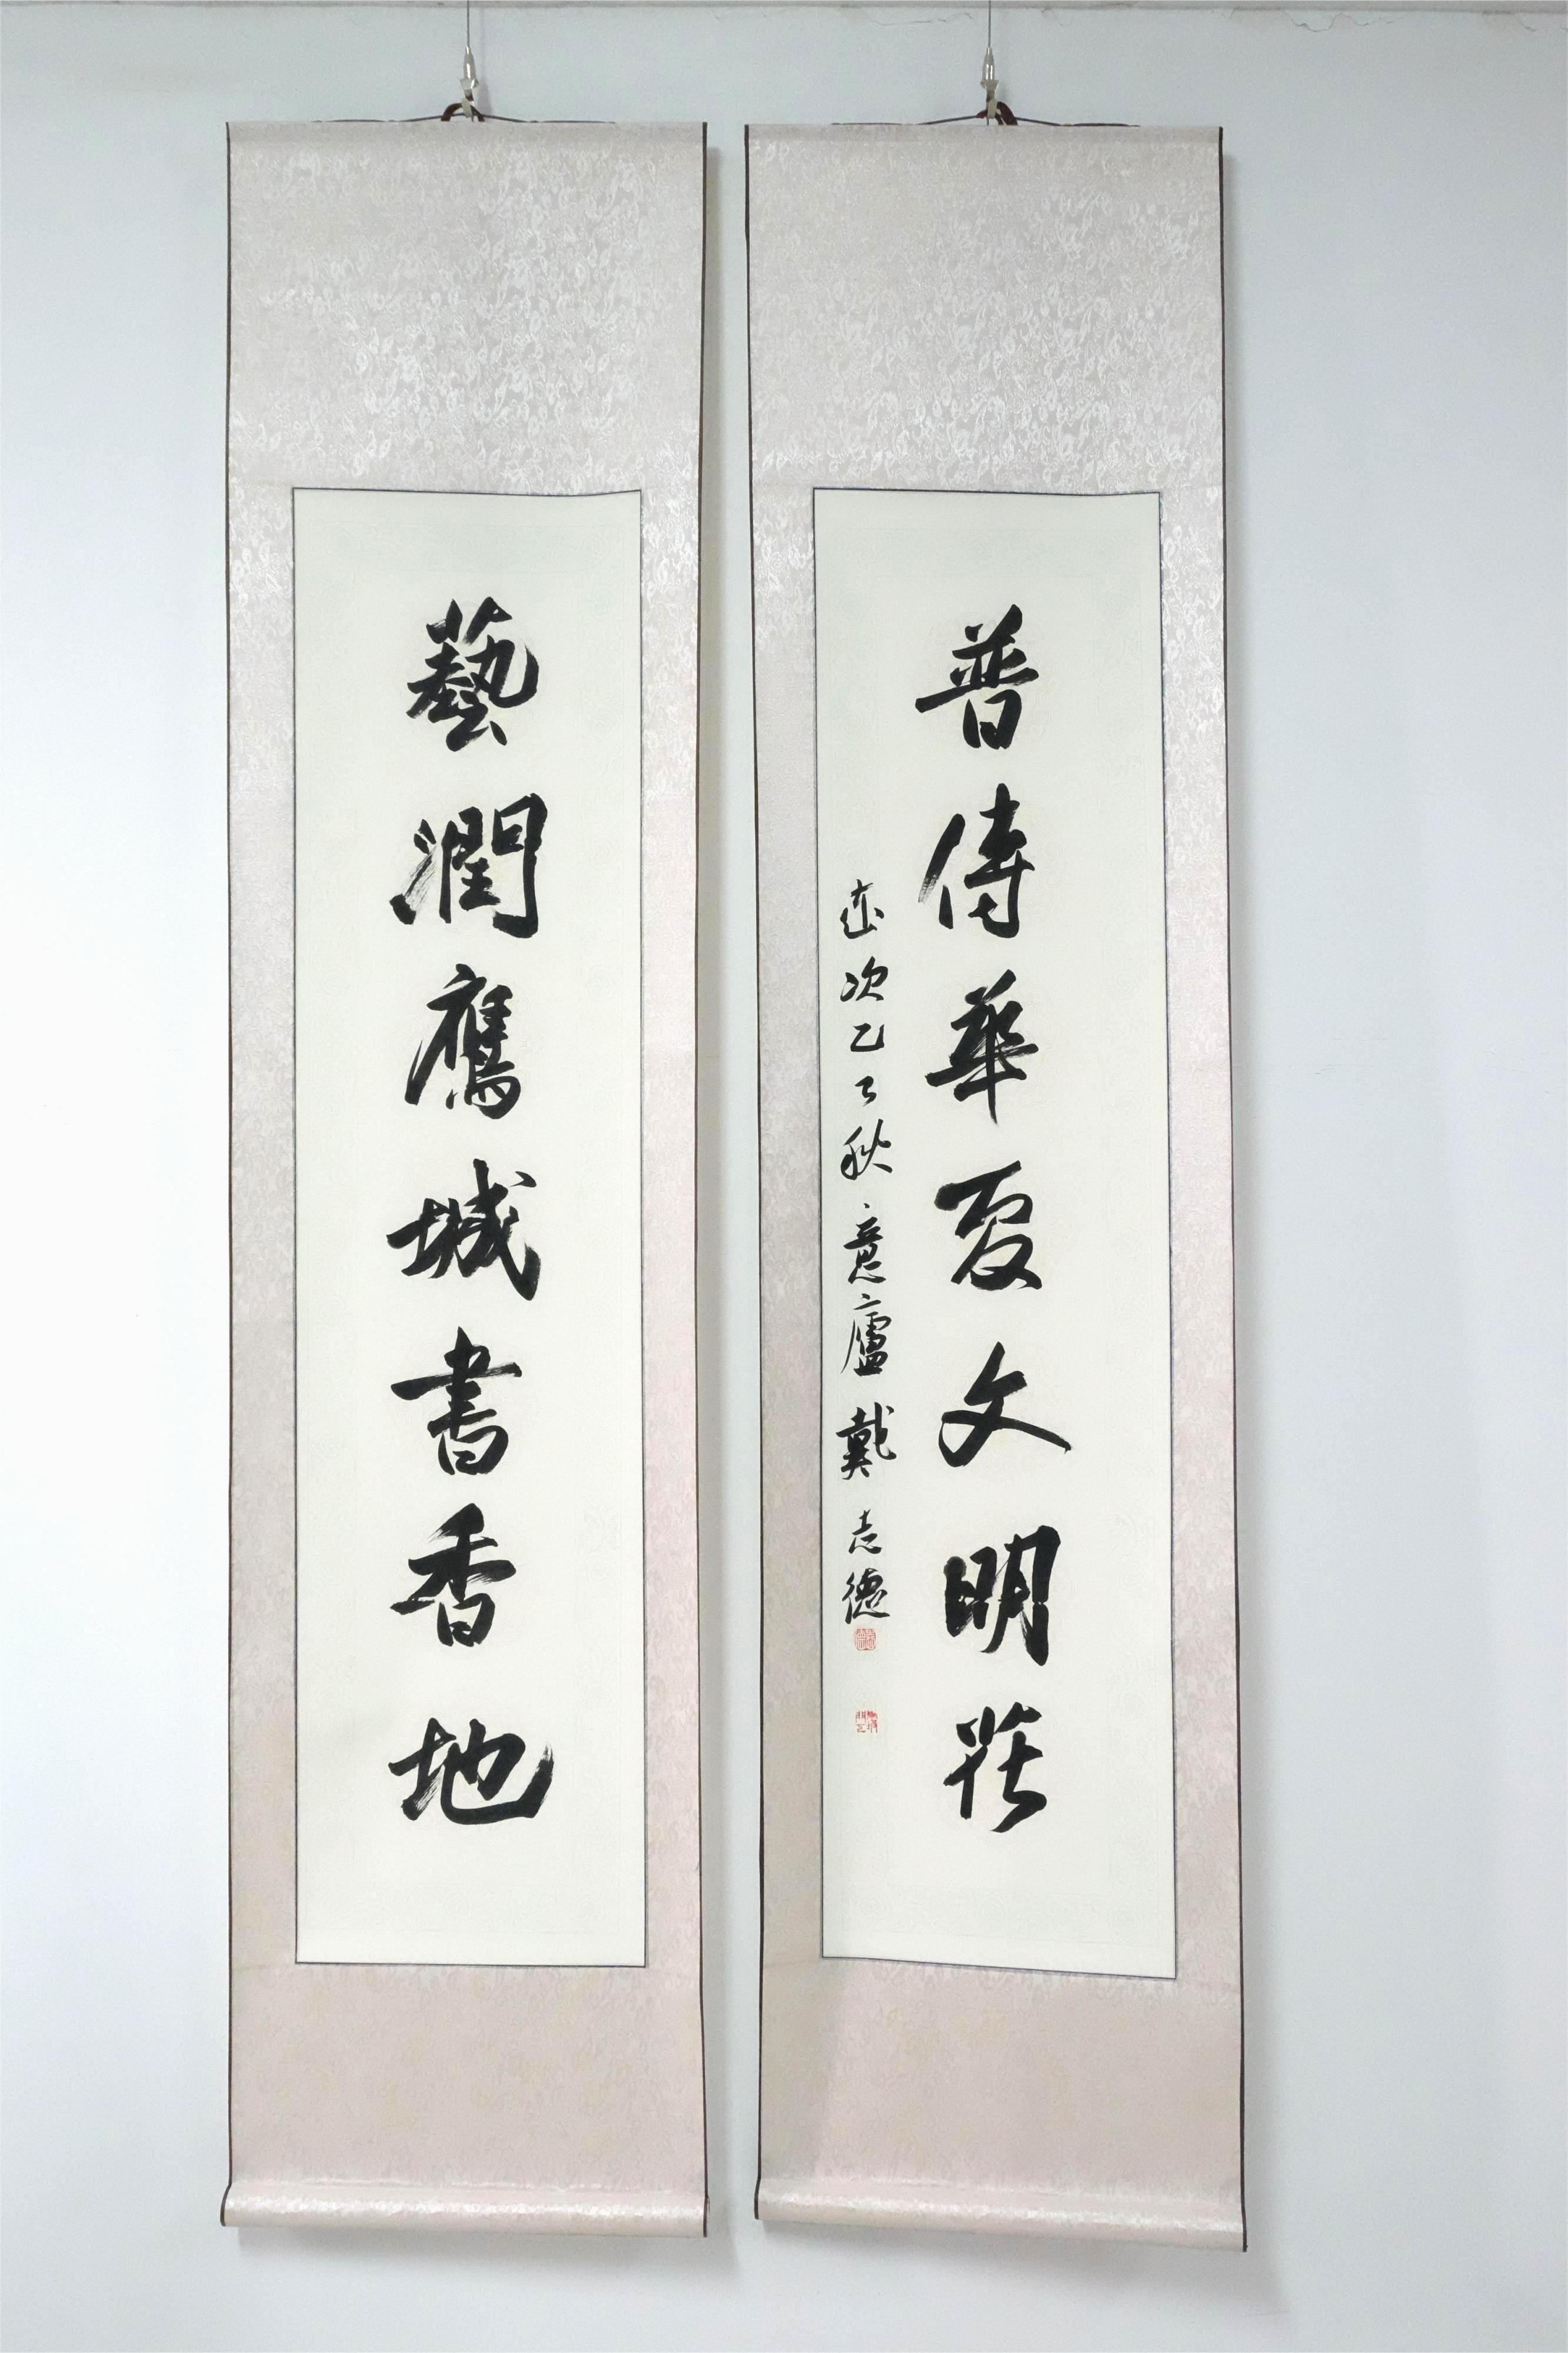 藝潤鷹城書香地
普傳華夏文明
歲次乙巳秋意廬戴志德